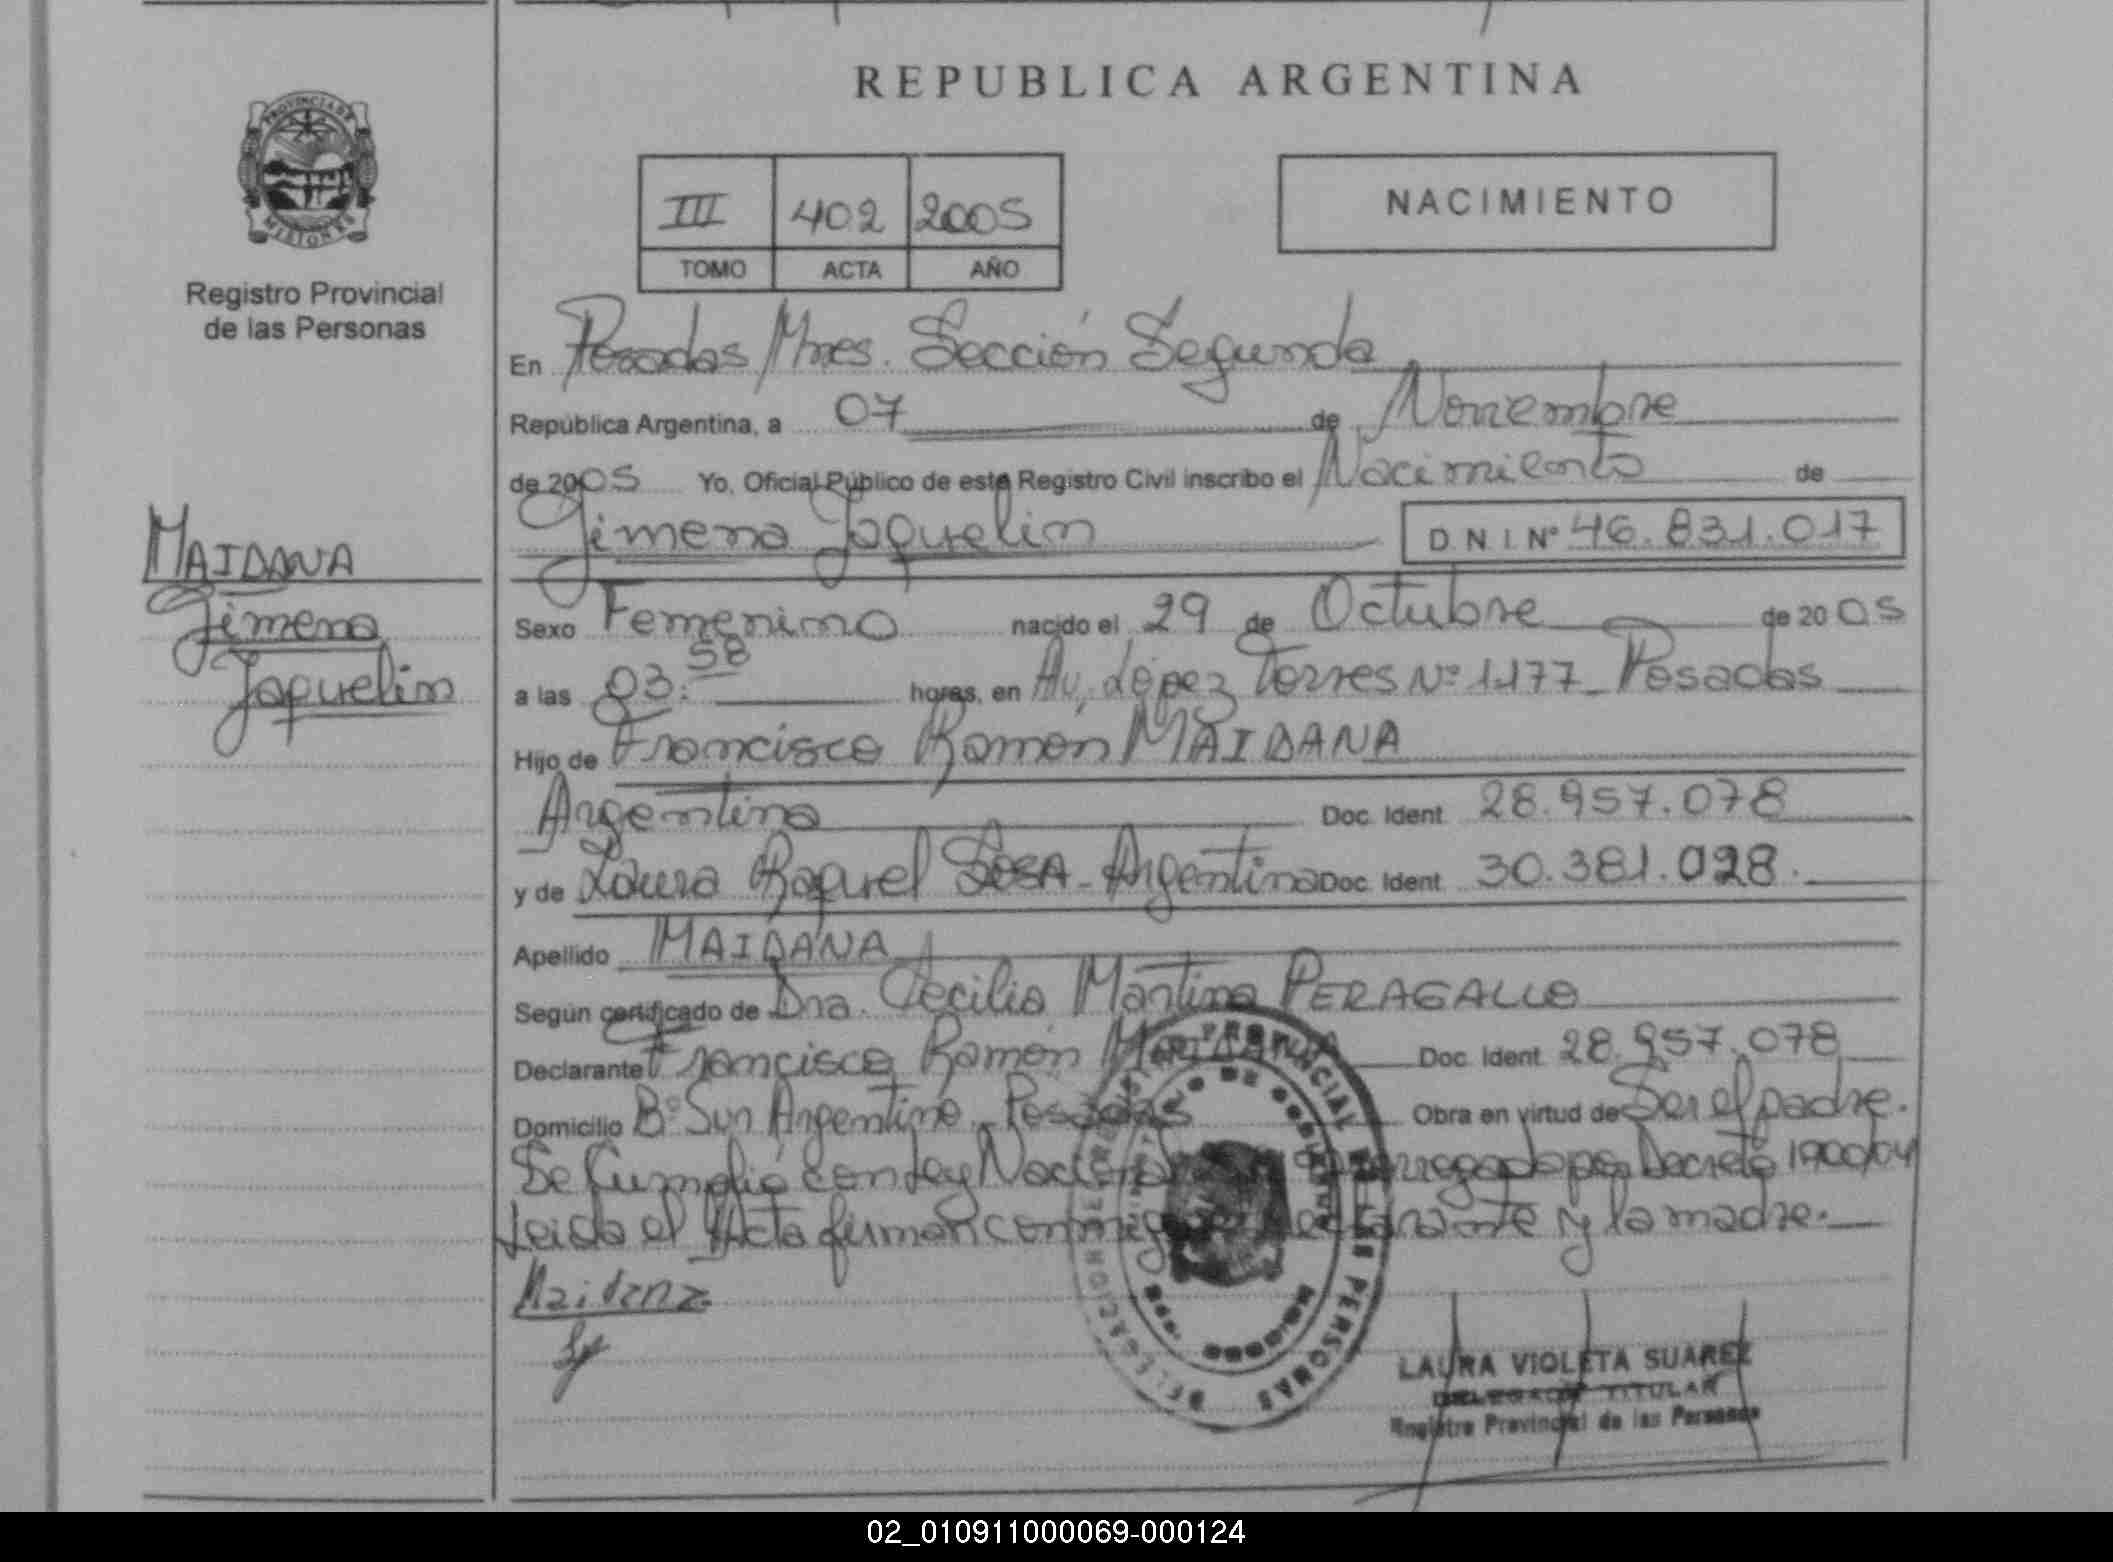 REPUBLICA ARGENTINA
PROVINCIA DE
MISIONES
Registro Provincial
de las Personas
III 402 2005
TOMO ACTA AÑO
NACIMIENTO
En Posadas Mnes. Sección Segunda
República Argentina, a 07 de Noviembre
de 2005 Yo, Oficial Público de este Registro Civil inscribo el Nacimiento de
Jimena Jaquelin D.N.I. Nº 46.831.017
MAIDANA
Jimena
Jaquelin
Sexo Femenino nacido el 29 de Octubre de 2005
a las 03:58 horas, en Av. López Torres Nº 1177 - Posadas
Hijo de Francisco Ramón MAIDANA
Argentina Doc. Ident. 28.957.078
y de Laura Raquel SOSA - Argentina Doc. Ident. 30.381.028.
Apellido MAIDANA
Según certificado de Dra. Cecilia Martina PERAGALLO
Declarante Francisco Ramón MAIDANA Doc. Ident. 28.957.078
Domicilio Bº Sur Argentino - Posadas Obra en virtud de Ser el padre.
Se Cumplió con Ley Nacional por Decreto 1900/04
Leida el Acta firman conmigo declarante y la madre.
Maidana
REGISTRO PROVINCIAL DE LAS PERSONAS
LAURA VIOLETA SUAREZ
DELEGADA TITULAR
Registro Provincial de las Personas
02_010911000069-000124